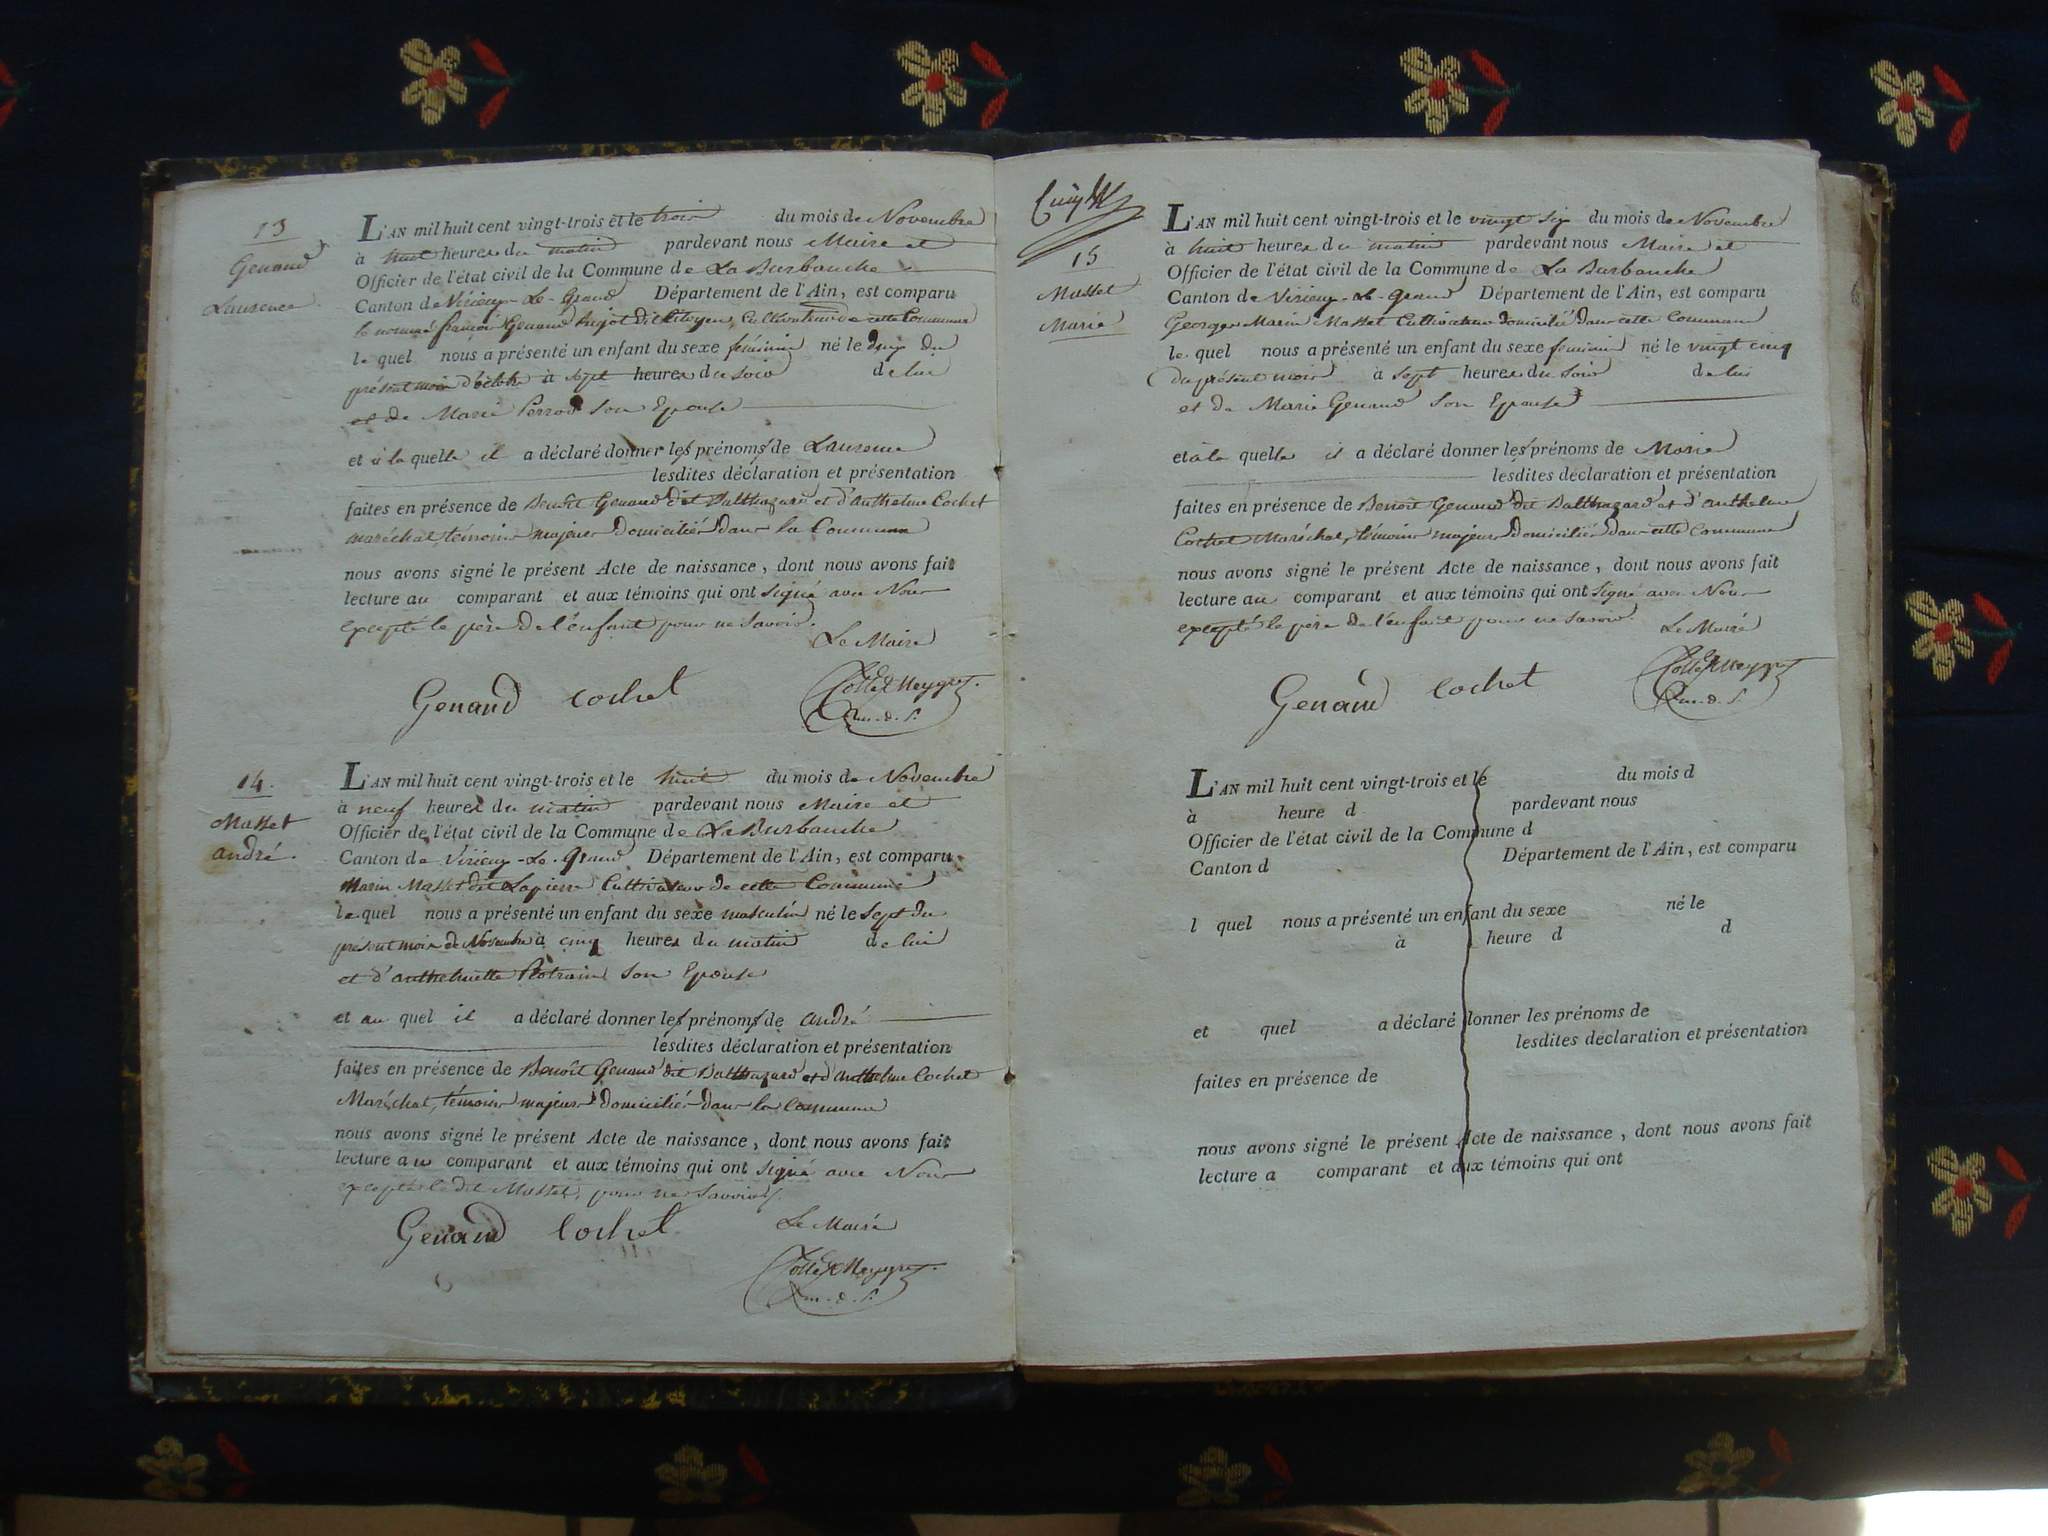 13
Genand
Laurence
L'AN mil huit cent vingt-trois et le trois du mois de Novembre
à huit heures du matin pardevant nous Maire et
Officier de l'état civil de la Commune de La Burbanche
Canton de Virieux-Le-Grand Département de l'Ain, est comparu
le nommé françois Genand dit Citoyen, Cultivateur de cette Commune
le quel nous a présenté un enfant du sexe féminin né le deux du
présent mois à sept heures du soir de lui
et de Marie Perrod Son Epouse
et à la quelle il a déclaré donner les prénoms de Laurence
lesdites déclaration et présentation
faites en présence de Benoît Genand dit Balthazard et d'anthelme Cochet
maréchal, témoins majeurs domiciliés dans la Commune
nous avons signé le présent Acte de naissance, dont nous avons fait
lecture au comparant et aux témoins qui ont signé avec Nous
excepté le père de l'enfant pour ne savoir.
Le Maire
Genand Cochet
14.
Masset
andré.
L'AN mil huit cent vingt-trois et le huit du mois de Novembre
à neuf heures du matin pardevant nous Maire et
Officier de l'état civil de la Commune de La Burbanche
Canton de Virieux-Le-Grand Département de l'Ain, est comparu
Marin Masset dit Lapierre Cultivateur de cette Commune
le quel nous a présenté un enfant du sexe masculin né le Sept du
présent mois de Novembre à cinq heures du matin de lui
et d'anthelmette Son Epouse
et au quel il a déclaré donner les prénoms de andré
lesdites déclaration et présentation
faites en présence de Benoît Genand dit Balthazard et d'anthelme Cochet
Maréchal, témoins majeurs domiciliés dans la commune
nous avons signé le présent Acte de naissance, dont nous avons fait
lecture au comparant et aux témoins qui ont signé avec Nous
excepté le dit Masset, pour ne savoir.
Le Maire
Genand Cochet
15
Masset
Marie
L'AN mil huit cent vingt-trois et le vingt six du mois de Novembre
à huit heures du matin pardevant nous Maire et
Officier de l'état civil de la Commune de La Burbanche
Canton de Virieux-Le-Grand Département de l'Ain, est comparu
George Marin Masset Cultivateur domicilié dans cette Commune
le quel nous a présenté un enfant du sexe féminin né le vingt cinq
du présent mois à sept heures du soir de lui
et de Marie Genand Son Epouse
et à la quelle il a déclaré donner les prénoms de Marie
lesdites déclaration et présentation
faites en présence de Benoît Genand dit Balthazard et d'anthelme
Cochet Maréchal, témoins majeurs domiciliés dans cette Commune
nous avons signé le présent Acte de naissance, dont nous avons fait
lecture au comparant et aux témoins qui ont Signé avec Nous
excepté le père de l'enfant pour ne savoir.
Le Maire
Genand Cochet
L'AN mil huit cent vingt-trois et le du mois d
à heure d pardevant nous
Officier de l'état civil de la Commune d
Canton d Département de l'Ain, est comparu
l quel nous a présenté un enfant du sexe né le
à heure d d
et quel a déclaré donner les prénoms de
lesdites déclaration et présentation
faites en présence de
nous avons signé le présent Acte de naissance, dont nous avons fait
lecture a comparant et aux témoins qui ont